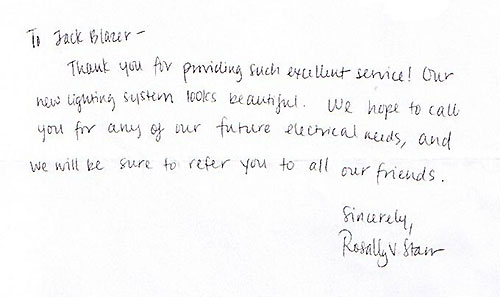 To Jack Blazer -
Thank you for providing such excellent service! Our
new lighting system looks beautiful. We hope to call
you for any of our future electrical needs, and
we will be sure to refer you to all our friends.
Sincerely,
Rosally V Starr